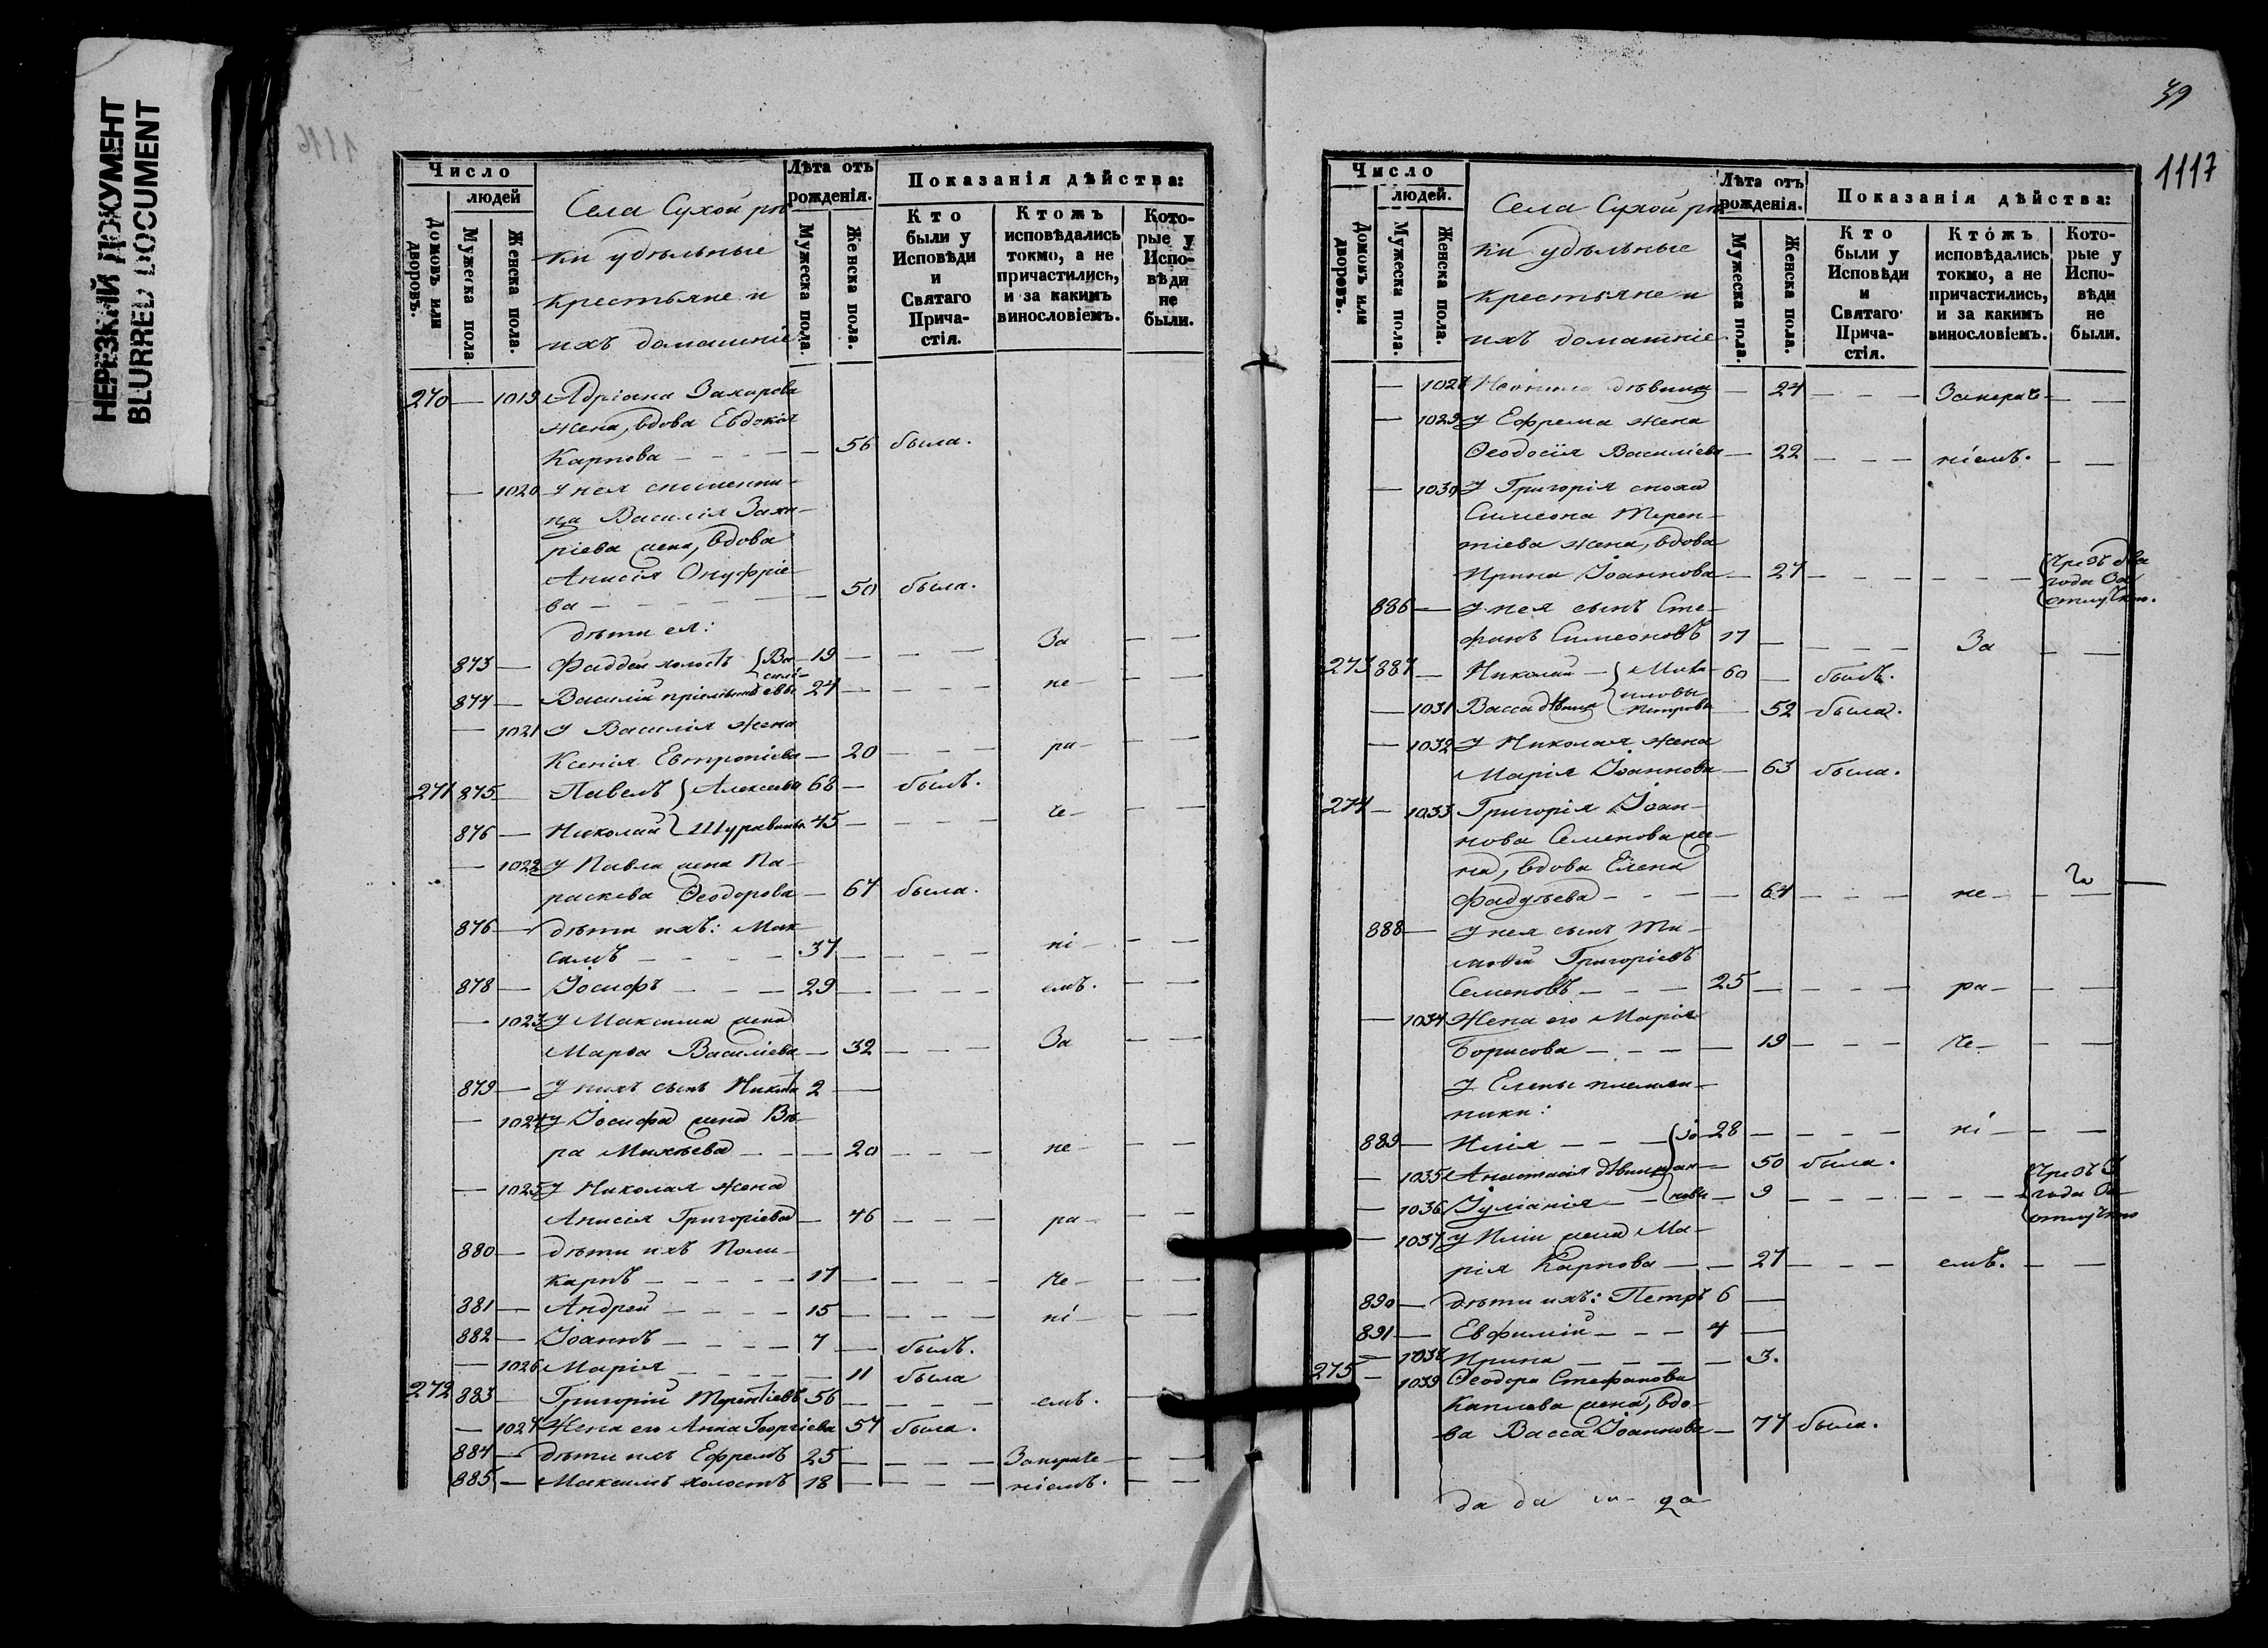 НЕРЕЗКИЙ ДОКУМЕНТ
BLURRED DOCUMENT
Число
людей
Домовъ или дворовъ.
Мужеска пола.
Женска пола.
Села Сухой рѣ-
ки удѣльные
крестьяне и
ихъ домашніе
Лѣта отъ рожденія.
Мужеска пола.
Женска пола.
Показанія дѣйства:
Кто были у Исповѣди и Святаго Прича-стія.
Ктожъ исповѣдались токмо, а не причастились, и за какимъ винословіемъ.
Кото-рые у Испо-вѣди не были.
270 — 1019 Адріана Захарова
жена, вдова Евдокія
Карпова — 56 была.
— 1020 У нея
Василія Заха-
ріева жена, вдова
Анисія Онуфріе-
ва — 50 была.
дѣти ея:
873 — Фаддей холостъ Ва- 19 — За — —
силі-
874 — Василій евы 27 — не — —
— 1021 У Василія жена
Ксенія Евтропіева — 20 — ра — —
271 875 — Павелъ Алексѣевы 68 — былъ.
876 — Николай 45 — че — —
— 1022 У Павла жена Па-
раскева Ѳеодорова — 67 была.
876 — дѣти ихъ: Мак-
симъ — 37 — ні — —
878 — Іосифъ — 29 — емъ. — —
— 1023 У Максима жена
Марѳа Василіева — 32 — За — —
879 — У нихъ сынъ Никита 2 —
— 1024 У Іосифа жена Вѣ-
ра Михѣева — 20 — не — —
— 1025 У Николая жена
Анисія Григоріева — 46 — ра — —
880 — дѣти ихъ Поли-
карпъ — 17 — че — —
881 — Андрей — 15 — ні — —
882 — Іоаннъ — 7 — былъ.
— 1026 Марія — 11 была
272 883 — Григорій Терентіевъ 56 — емъ. —
— 1027 Жена его Анна Георгіева 57 была.
884 — дѣти ихъ Ефремъ 25 — Занераче — —
885 — Максимъ холостъ 18 — ніемъ. — —
39
1117
Число
людей.
Домовъ или дворовъ.
Мужеска пола.
Женска пола.
Села Сухой рѣ-
ки удѣльные
крестьяне и
ихъ домашніе
Лѣта отъ рожденія.
Мужеска пола.
Женска пола.
Показанія дѣйства:
Кто были у Исповѣди и Святаго Прича-стія.
Ктожъ исповѣдались токмо, а не причастились, и за какимъ винословіемъ.
Кото-рые у Испо-вѣди не были.
— 1028 Неонила дѣвица — 24 — Занераче — —
— 1029 У Ефрема жена
Ѳеодосія Василіева — 22 — ніемъ. — —
— 1030 У Григорія сноха
Симеона Терен-
тіева жена, вдова
Ирина Іоаннова — 27 — Чрезъ два
года За
отлучкою.
886 — У нея сынъ Сте-
фанъ Симеоновъ 17 — За — —
273 887 — Николай 60 — былъ.
— 1031 Васса дѣвица Петровы — 52 была.
— 1032 У Николая жена
Марія Іоаннова — 63 была.
274 — 1033 Григорія Іоан-
нова Семенова же-
на, вдова Елена
Фадѣева — 67 — не — —
888 — У нея сынъ Ти-
моѳей Григоріевъ
Семеновъ — 25 — ра — —
— 1034 Жена его Марія
Борисова — 19 — че — —
У Елены племян-
ники:
889 — Илія — Іо- 28 — ні — —
— 1035 Анастасія дѣвица ан- — 50 была.
— 1036 Іуліанія — новы — 9 — Чрезъ 3
года За
отлучкою
— 1037 У Иліи жена Ма-
рія Карпова — 27 — емъ. — —
890 — дѣти ихъ: Петръ 6 —
891 — Евфимій — 4 —
— 1038 Ирина — 3.
275 — 1039 Ѳеодора Стефанова
Каплева жена, вдо-
ва Васса Іоаннова — 77 была.